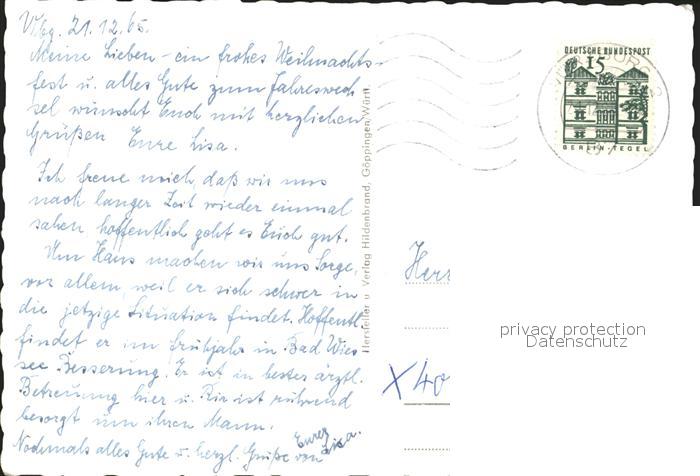 Wbg. 21.12.65.
Meine Lieben - ein frohes Weihnachts-
fest u. alles Gute zum Jahreswech
sel wünscht Euch mit herzlichen
Grüßen Eure Lisa.
Ich freue mich, daß wir uns
nach langer Zeit wieder einmal
sahen hoffentlich geht es Euch gut.
Um Hans machen wir uns Sorge,
vor allem, weil er sich schwer in
die jetzige Situation findet. Hoffentl.
findet er im Frühjahr in Bad Wies
see Besserung. Er ist in bester ärztl.
Betreuung hier u. Ria ist rührend
besorgt um ihren Mann.
Nochmals alles Gute u. herzl. Grüße von
Eurer
Lisa.
Hersteller u Verlag Hildenbrand, Göppingen/Württ.
DEUTSCHE BUNDESPOST
15
BERLIN-TEGEL
Herr
X 40
privacy protection
Datenschutz